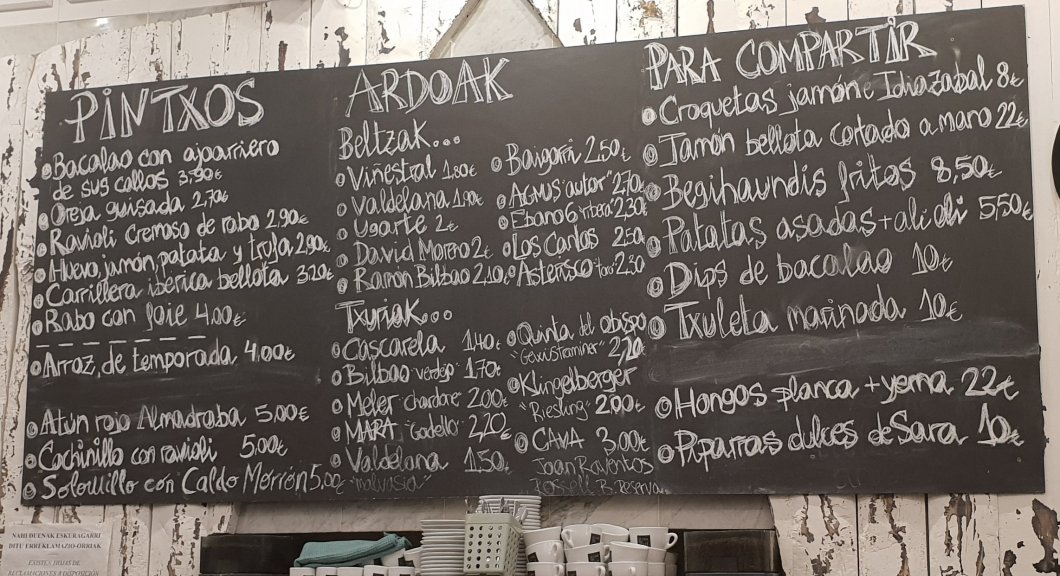 PINTXOS
Bacalao con ajoarriero
de sus callos 3,90€
Oreja guisada 2,70€
Ravioli cremoso de rabo 2,90€
Huevo, jamón, patata y trufa 2,90€
Carrillera ibérica bellota 3,20€
Rabo con foie 4,00€
Arroz de temporada 4,00€
Atún rojo Almadraba 5,00€
Cochinillo con ravioli 5,00€
Solomillo con Caldo Morrón 5,00€
ARDOAK
Beltzak...
Viñestral 1,80€
Valdelana 1,90€
Ugarte 2€
David Moreno 2€
Ramón Bilbao 2,10€
Baigorri 2,50€
Acmus "autor" 2,70€
Ebano 6 "ribera" 2,30€
Los Cantos 2,50
Asterisco "toro" 2,30
Txuriak...
Cascarela 1,40€
Bilbao verdejo 1,70€
Meler chardone 2,00€
MARA "Godello" 2,20€
Valdelana 1,50€
"malvasia"
Quinta del obispo
"Gewustraminer" 2,20
Klingelberger
"Riesling" 2,00€
CAVA 3,00€
Joan Raventos
Rossell B. Reserva
PARA COMPARTIR
Croquetas jamón e Idiazabal 8€
Jamón bellota cortado a mano 22€
Begihaundis fritos 8,50€
Patatas asadas + ali oli 5,50€
Dips de bacalao 10€
Txuleta marinada 10€
Hongos planca + yema 22€
Piparras dulces de Sara 10€
NAHI DUENAK ESKURAGARRI
DITU ERREKLAMAZIO-ORRIAK
EXISTEN HOJAS DE
RECLAMACIONES A DISPOSICIÓN